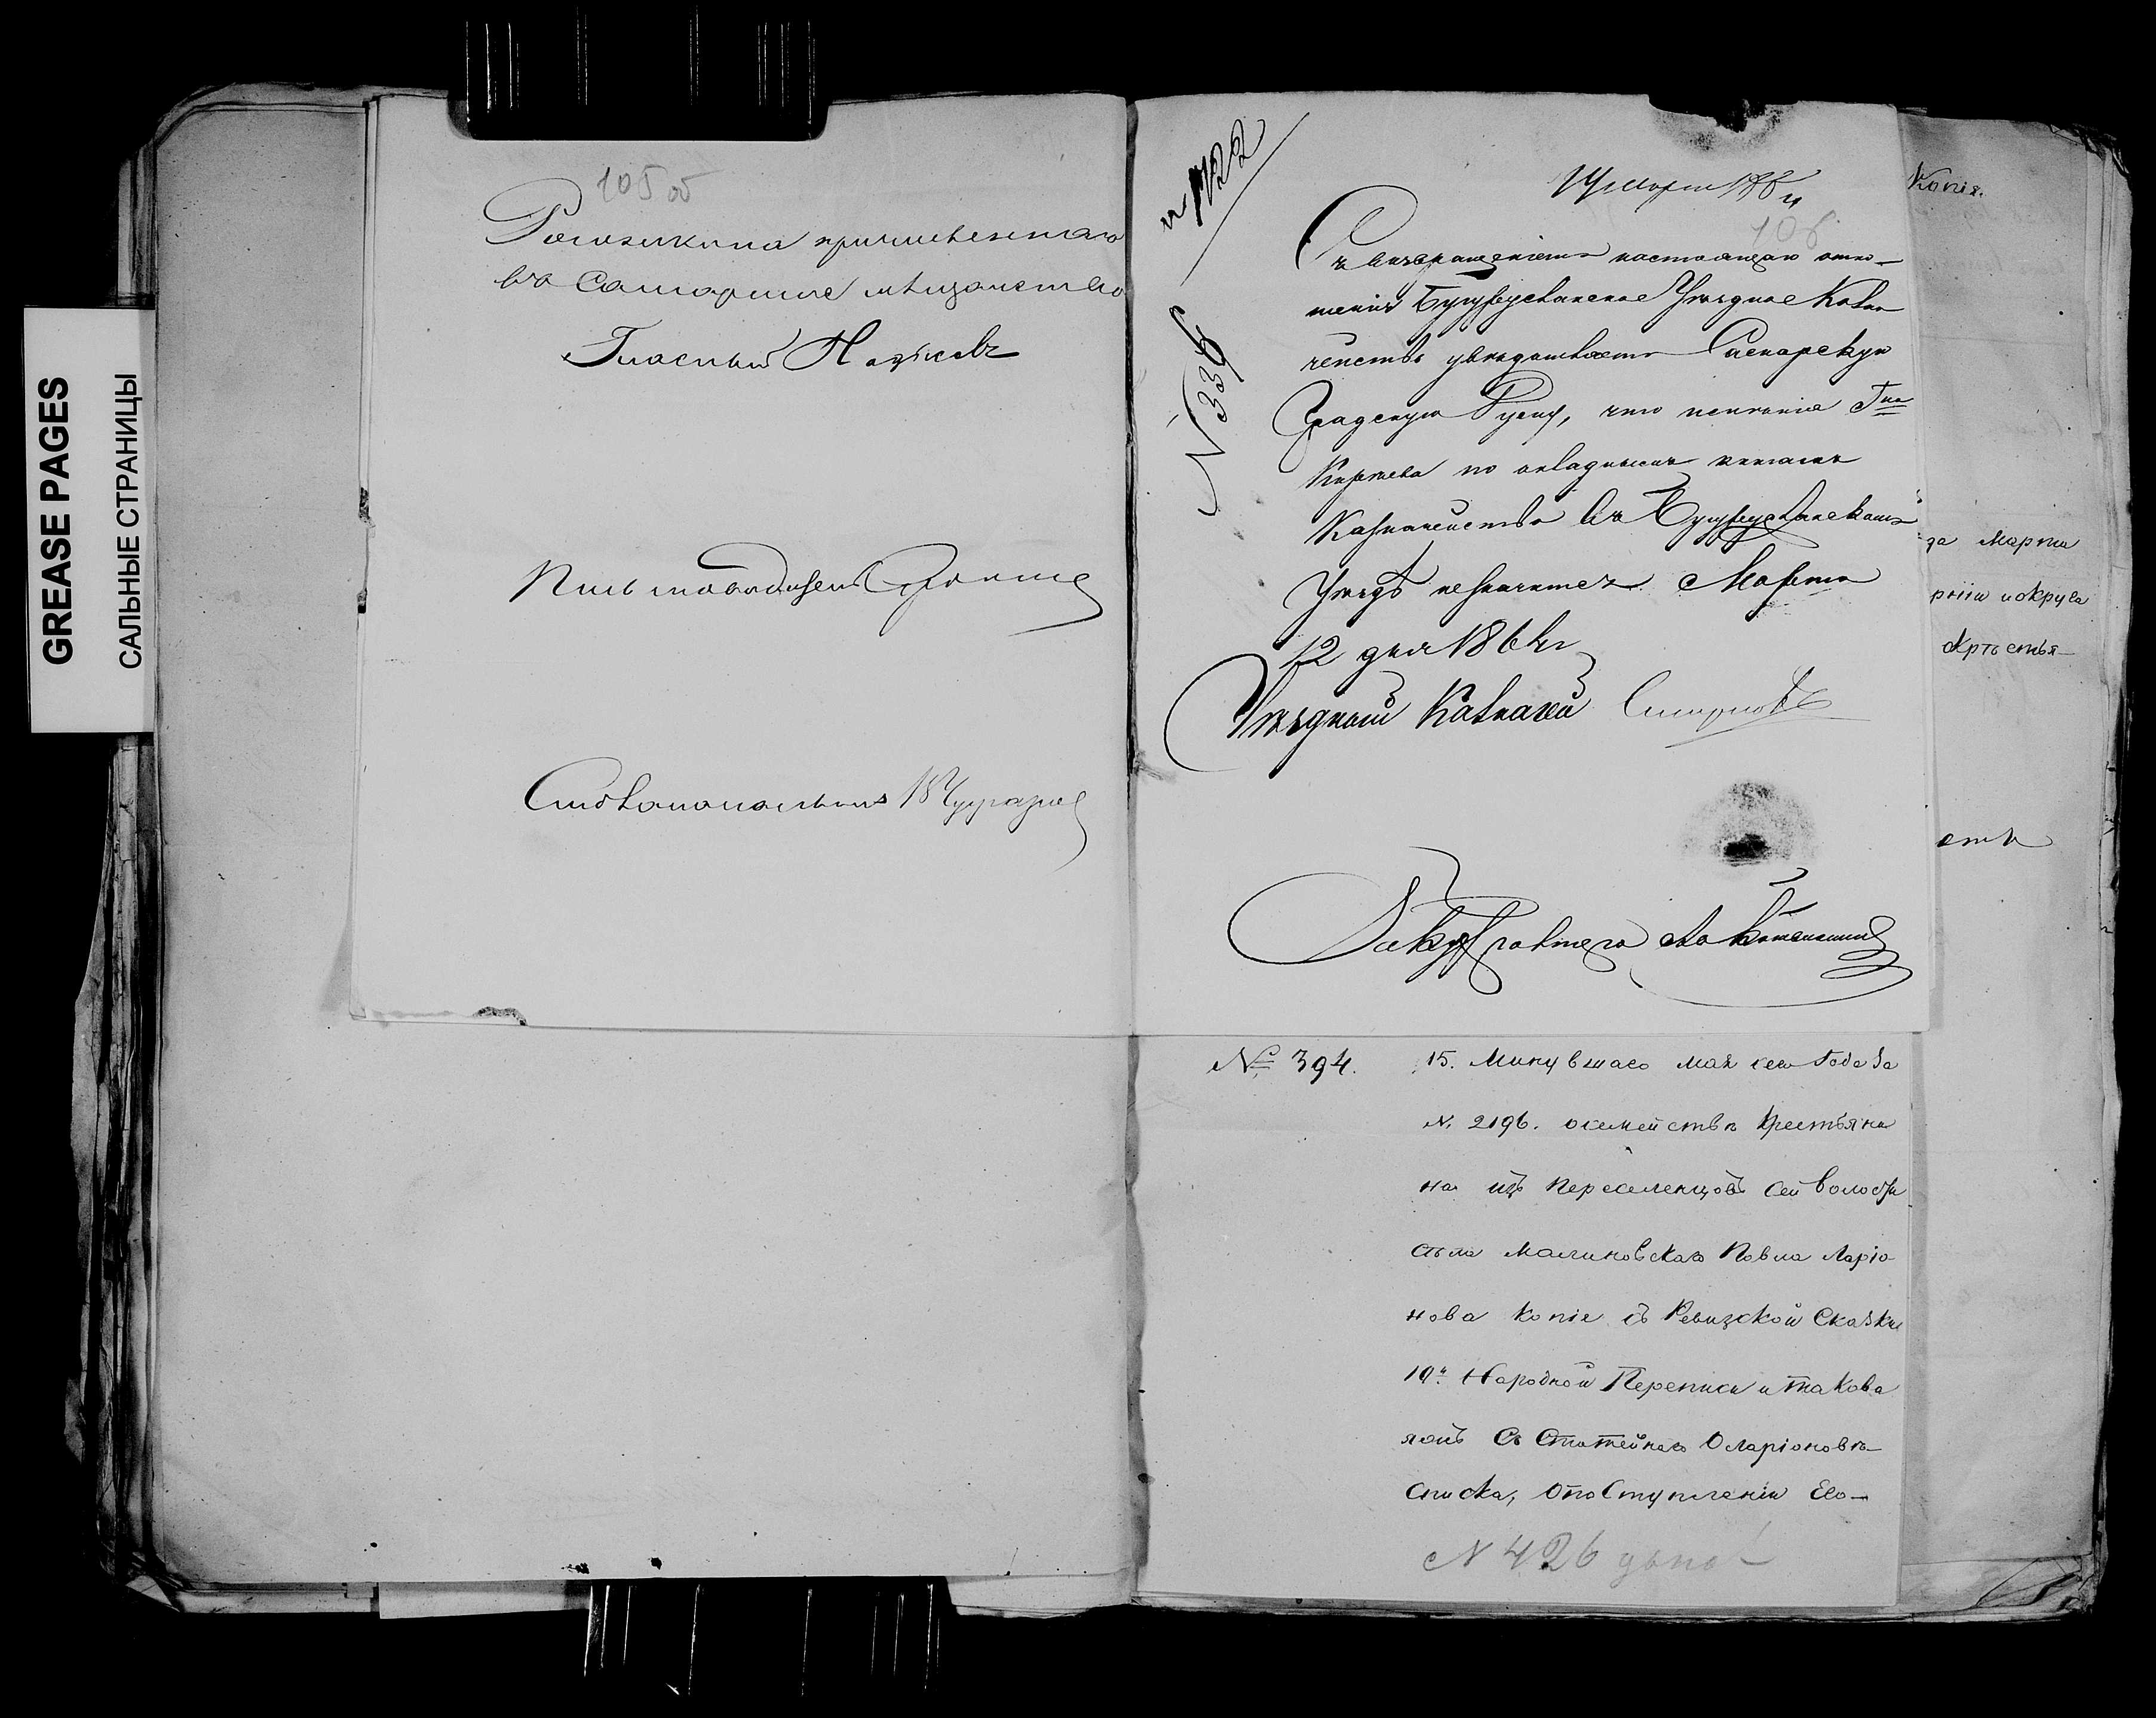 GREASE PAGES
САЛЬНЫЕ СТРАНИЦЫ
105 об
причисленнаго
въ Самарское мѣщанство
Гласный
Письмоводитель
Столоначальникъ
№ 722
№ 336
14 марта 1864
106
Съ возвращеніемъ настоящаго отно-
шенія Бугурусланское Уѣздное Казна
чейство увѣдомляетъ Самарскую
Градскую Думу, что имѣнія Гна
по окладнымъ книгамъ
Казначейства въ Бугурусланскомъ
Уѣздѣ незначится. Марта
12 дня 1864 г.
Уѣздный Казначей Смирновъ
За Бухгалтера
Копія.
да Марта
рніи и округа
Крѣстья-
есть
№ 394. 15. Минувшаго мая сего Года За
№. 2196. осемействѣ Крестьяни
на изъ переселенцовъ сей волости
села Малиновскаго Павла Ларіо
нова Копіе съ Ревизской Сказки
10й. Народной Переписи и такова
яжъ Съ Статейнаго О Ларіоновѣ
списка, опоступленіи Его-
№ 426 дѣло